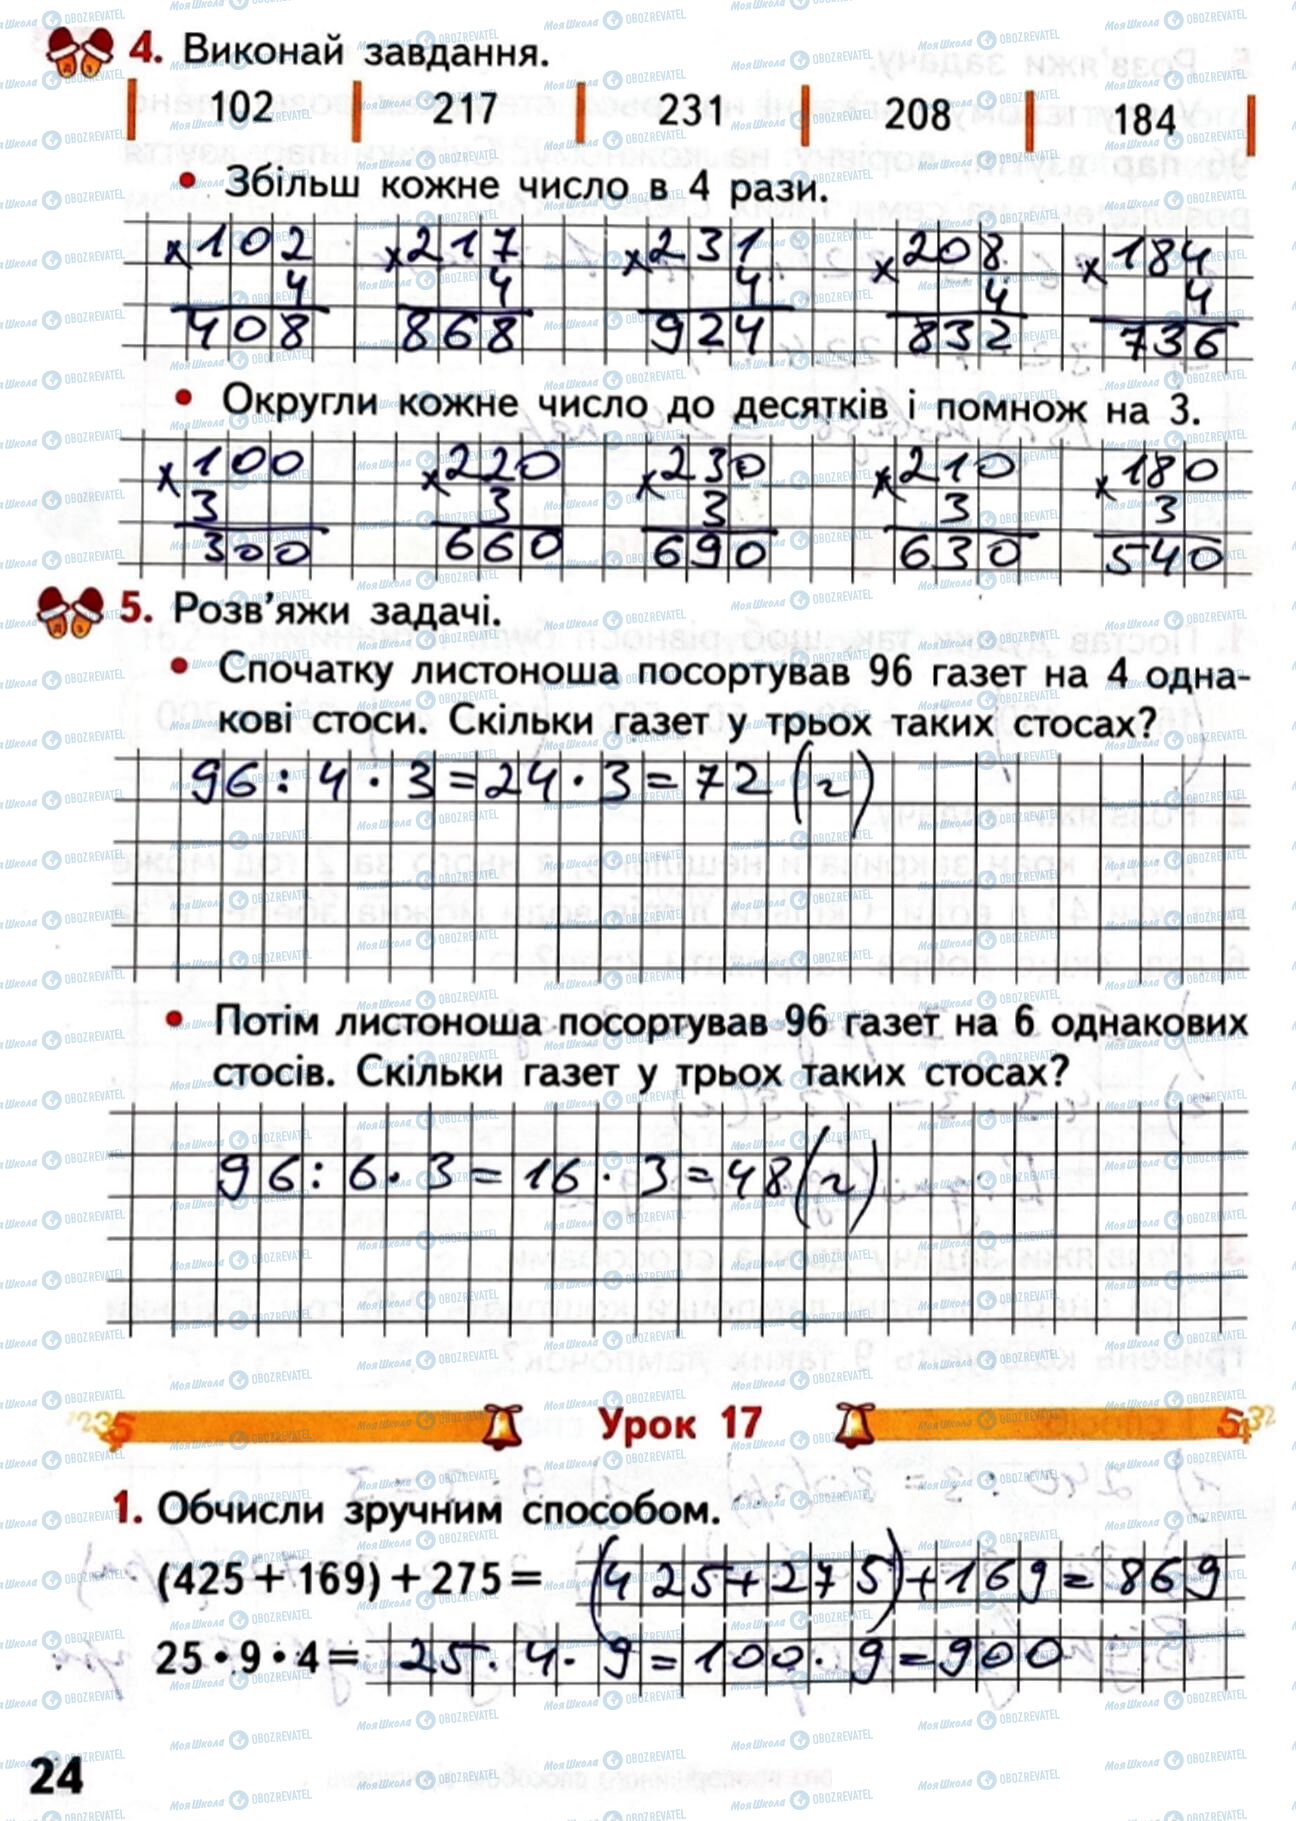 4. Виконай завдання.
102 217 231 208 184
• Збільш кожне число в 4 рази.
×102 ×217 ×231 ×208 ×184
4 4 4 4 4
408 868 924 832 736
• Округли кожне число до десятків і помнож на 3.
×100 ×220 ×230 ×210 ×180
3 3 3 3 3
300 660 690 630 540
5. Розв'яжи задачі.
• Спочатку листоноша посортував 96 газет на 4 одна-
кові стоси. Скільки газет у трьох таких стосах?
96 : 4 · 3 = 24 · 3 = 72 (г)
• Потім листоноша посортував 96 газет на 6 однакових
стосів. Скільки газет у трьох таких стосах?
96 : 6 · 3 = 16 · 3 = 48 (г)
Урок 17
1. Обчисли зручним способом.
(425 + 169) + 275 = (425 + 275) + 169 = 869
25 · 9 · 4 = 25 · 4 · 9 = 100 · 9 = 900
24
МояШкола OBOZREVATEL